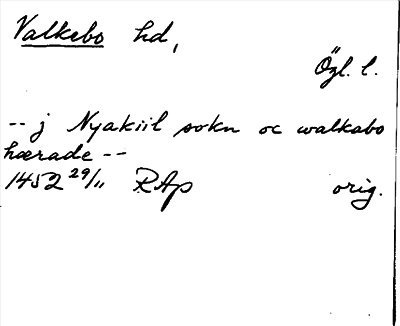 Valkebo hd,
Ögl. l.
-- j Nyakiil sokn oc walkabo
hærade --
1452 29/11 RAp orig.